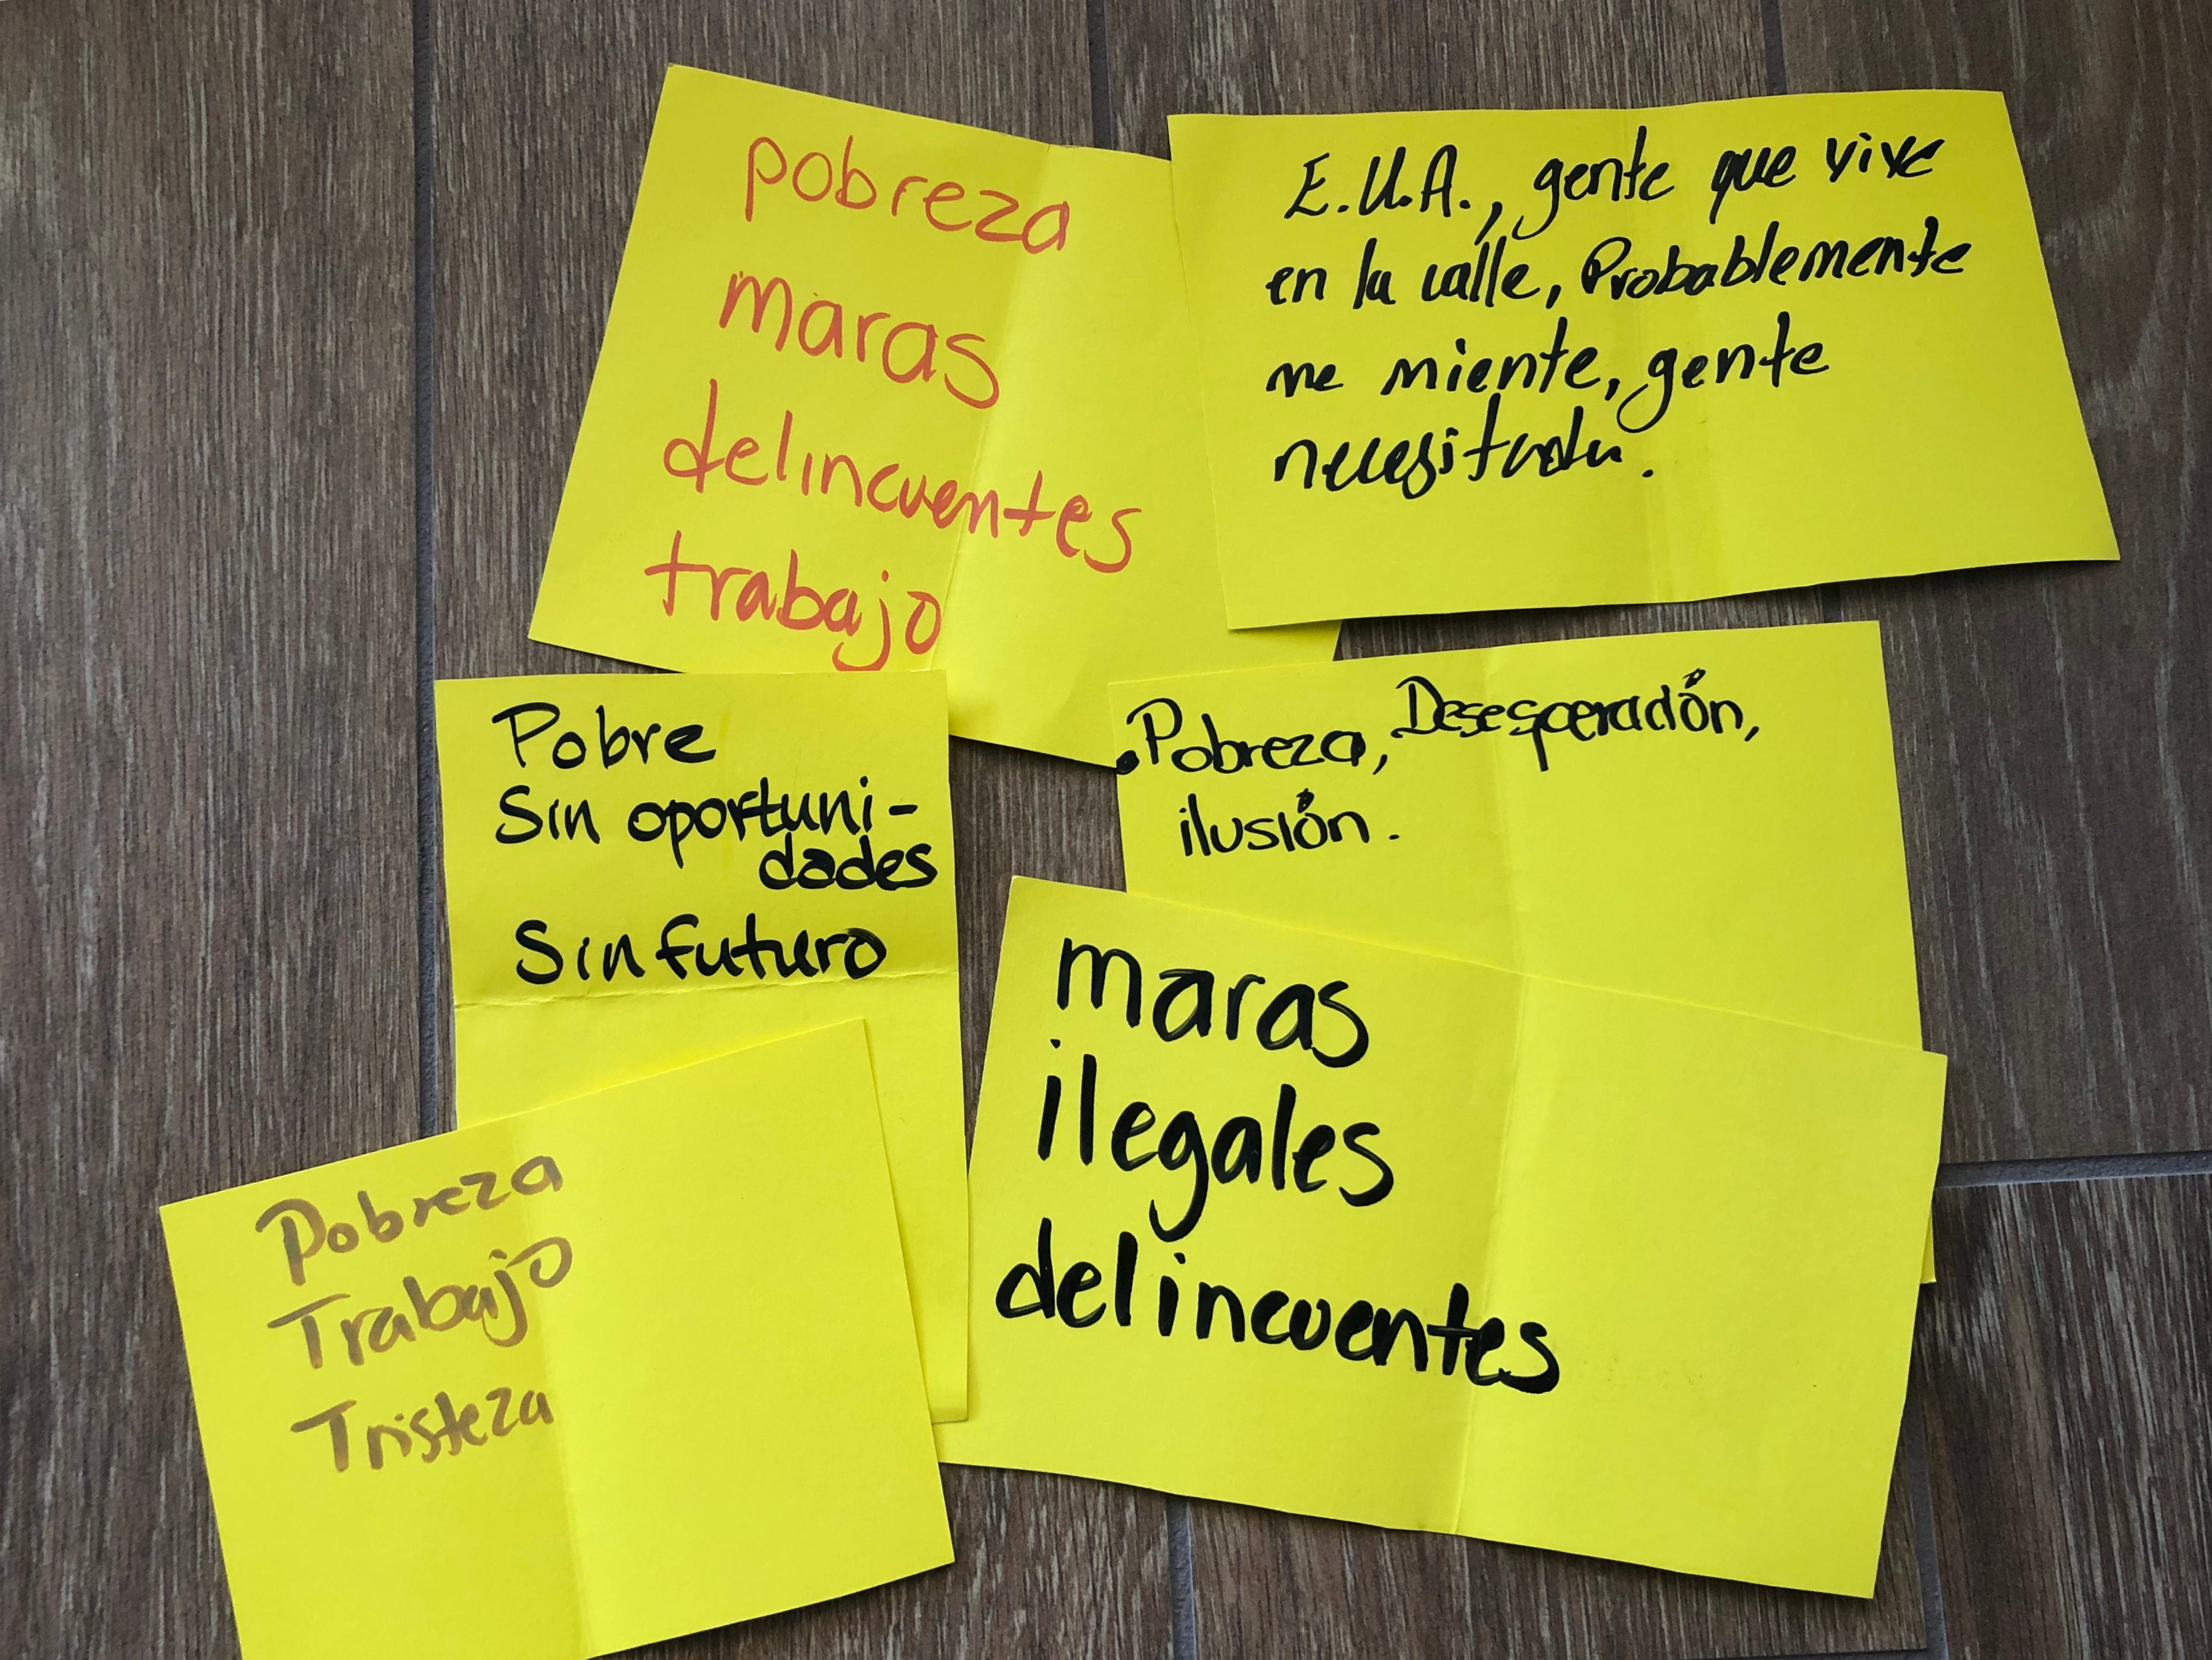 pobreza
maras
delincuentes
trabajo
E.U.A., gente que vive
en la calle, Probablemente
me miente, gente
necesitada.
Pobre
Sin oportuni-
dades
Sin futuro
•Pobreza, Desesperación,
ilusión.
maras
ilegales
delincuentes
Pobreza
Trabajo
Tristeza